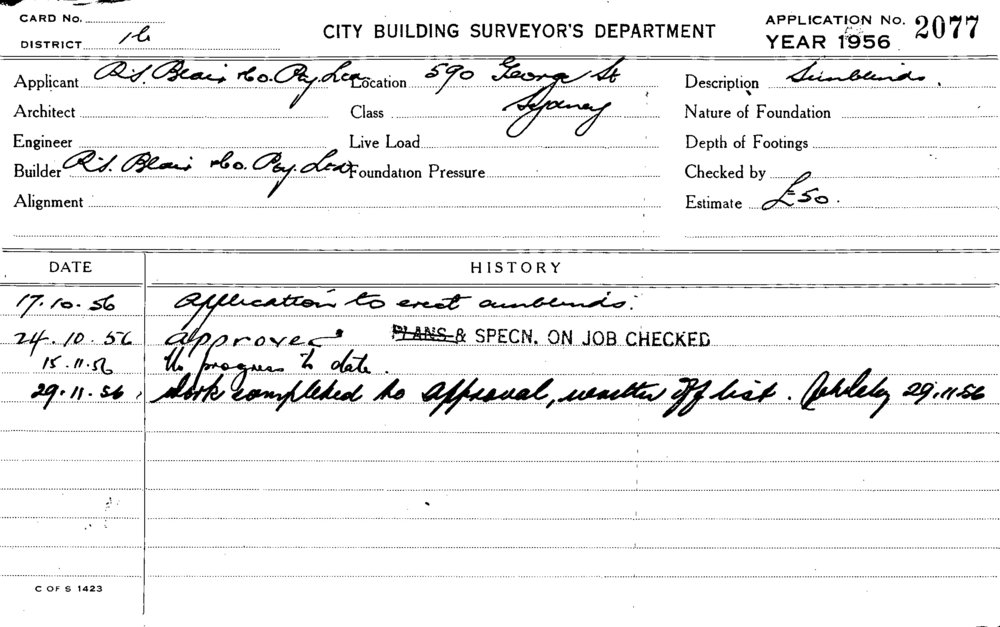 CARD No.
CITY BUILDING SURVEYOR'S DEPARTMENT
APPLICATION No. 2077
DISTRICT
YEAR 1956
Applicant R.S. Blair & Co. Pty. Ltd. Location 590 George St Description Sunblinds.
Architect Class Sydney Nature of Foundation
Engineer Live Load Depth of Footings
Builder R.S. Blair & Co. Pty. Ltd Foundation Pressure Checked by
Alignment Estimate £50.
DATE HISTORY
17.10.56 Application to erect sunblinds.
24.10.56 approved PLANS & SPECN. ON JOB CHECKED
15.11.56 No progress to date.
29.11.56, Work completed to approval, written off list. 29.11.56
C OF S 1423